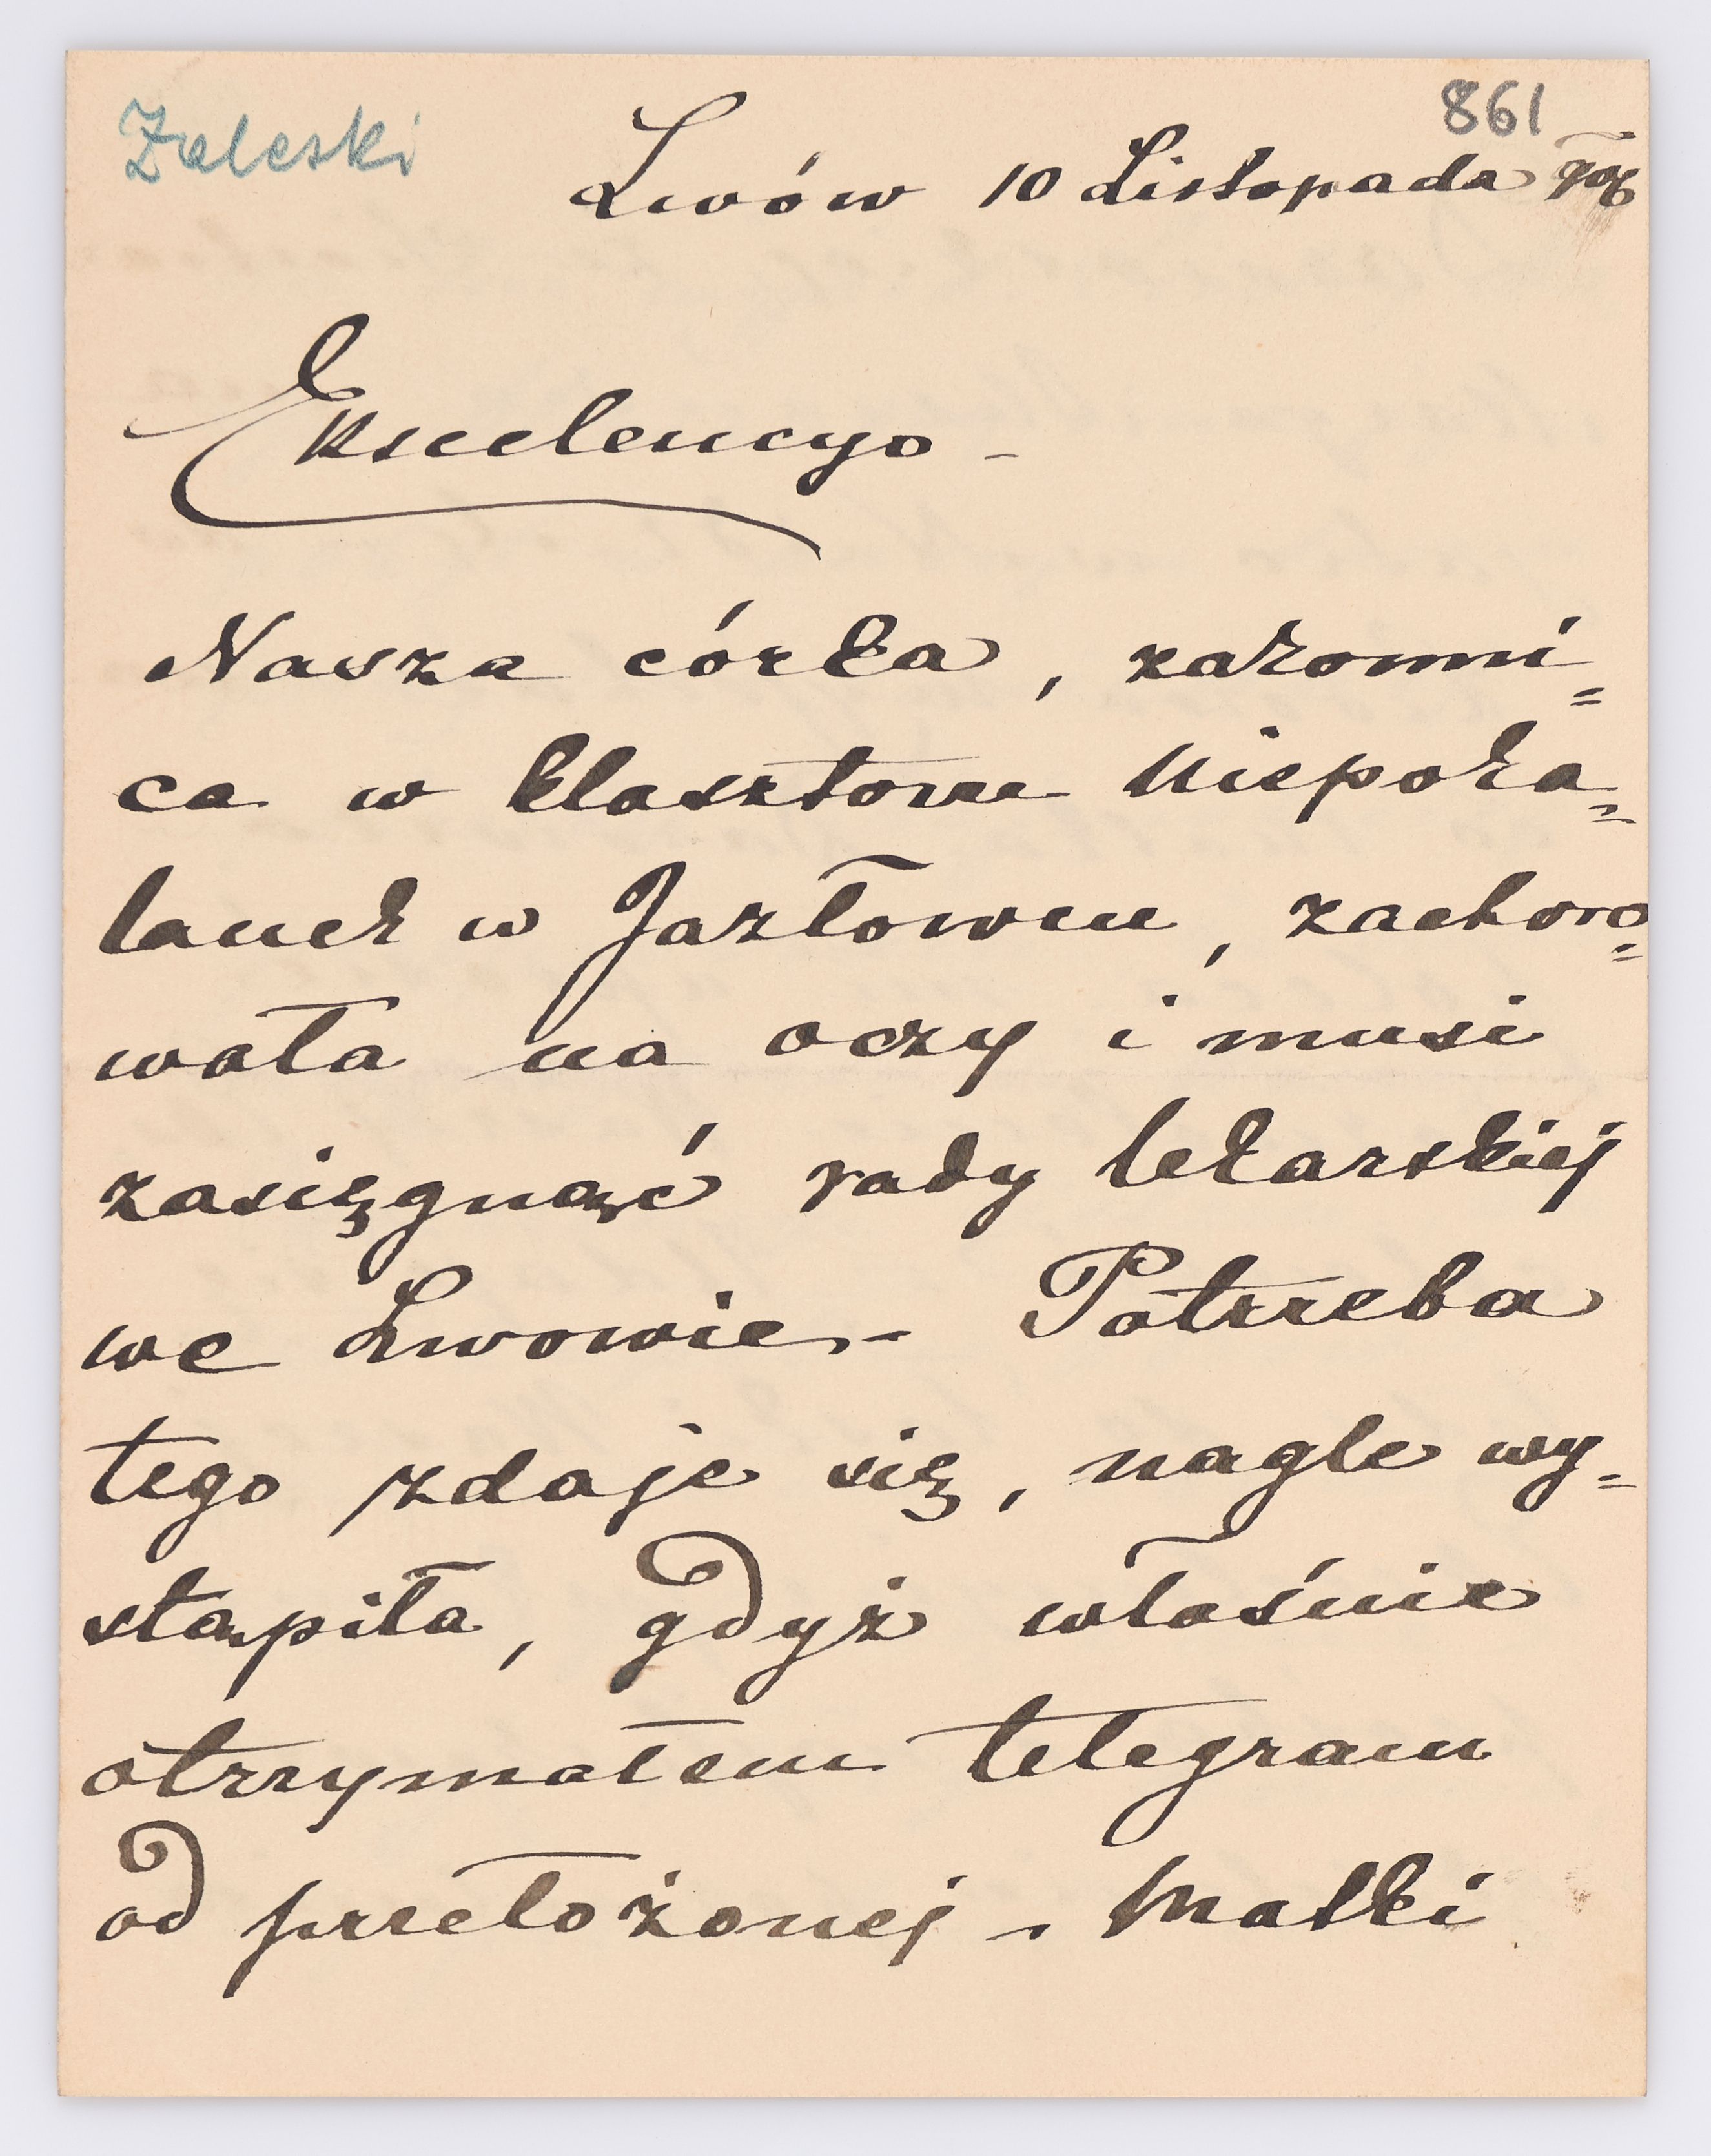 Zaleski
861
Lwów 10 Listopada
Ekscelencyo -
Nasza córka, zakonni=
ca w klasztorze Niepoka=
lanek w Jazłowcu, zachoro=
wała na oczy i musi
zasięgnąć rady lekarskiej
we Lwowie. - Potrzeba
tego zdaje się, nagle wy=
stąpiła, gdyż właśnie
otrzymałem telegram
od przełożonej, Matki